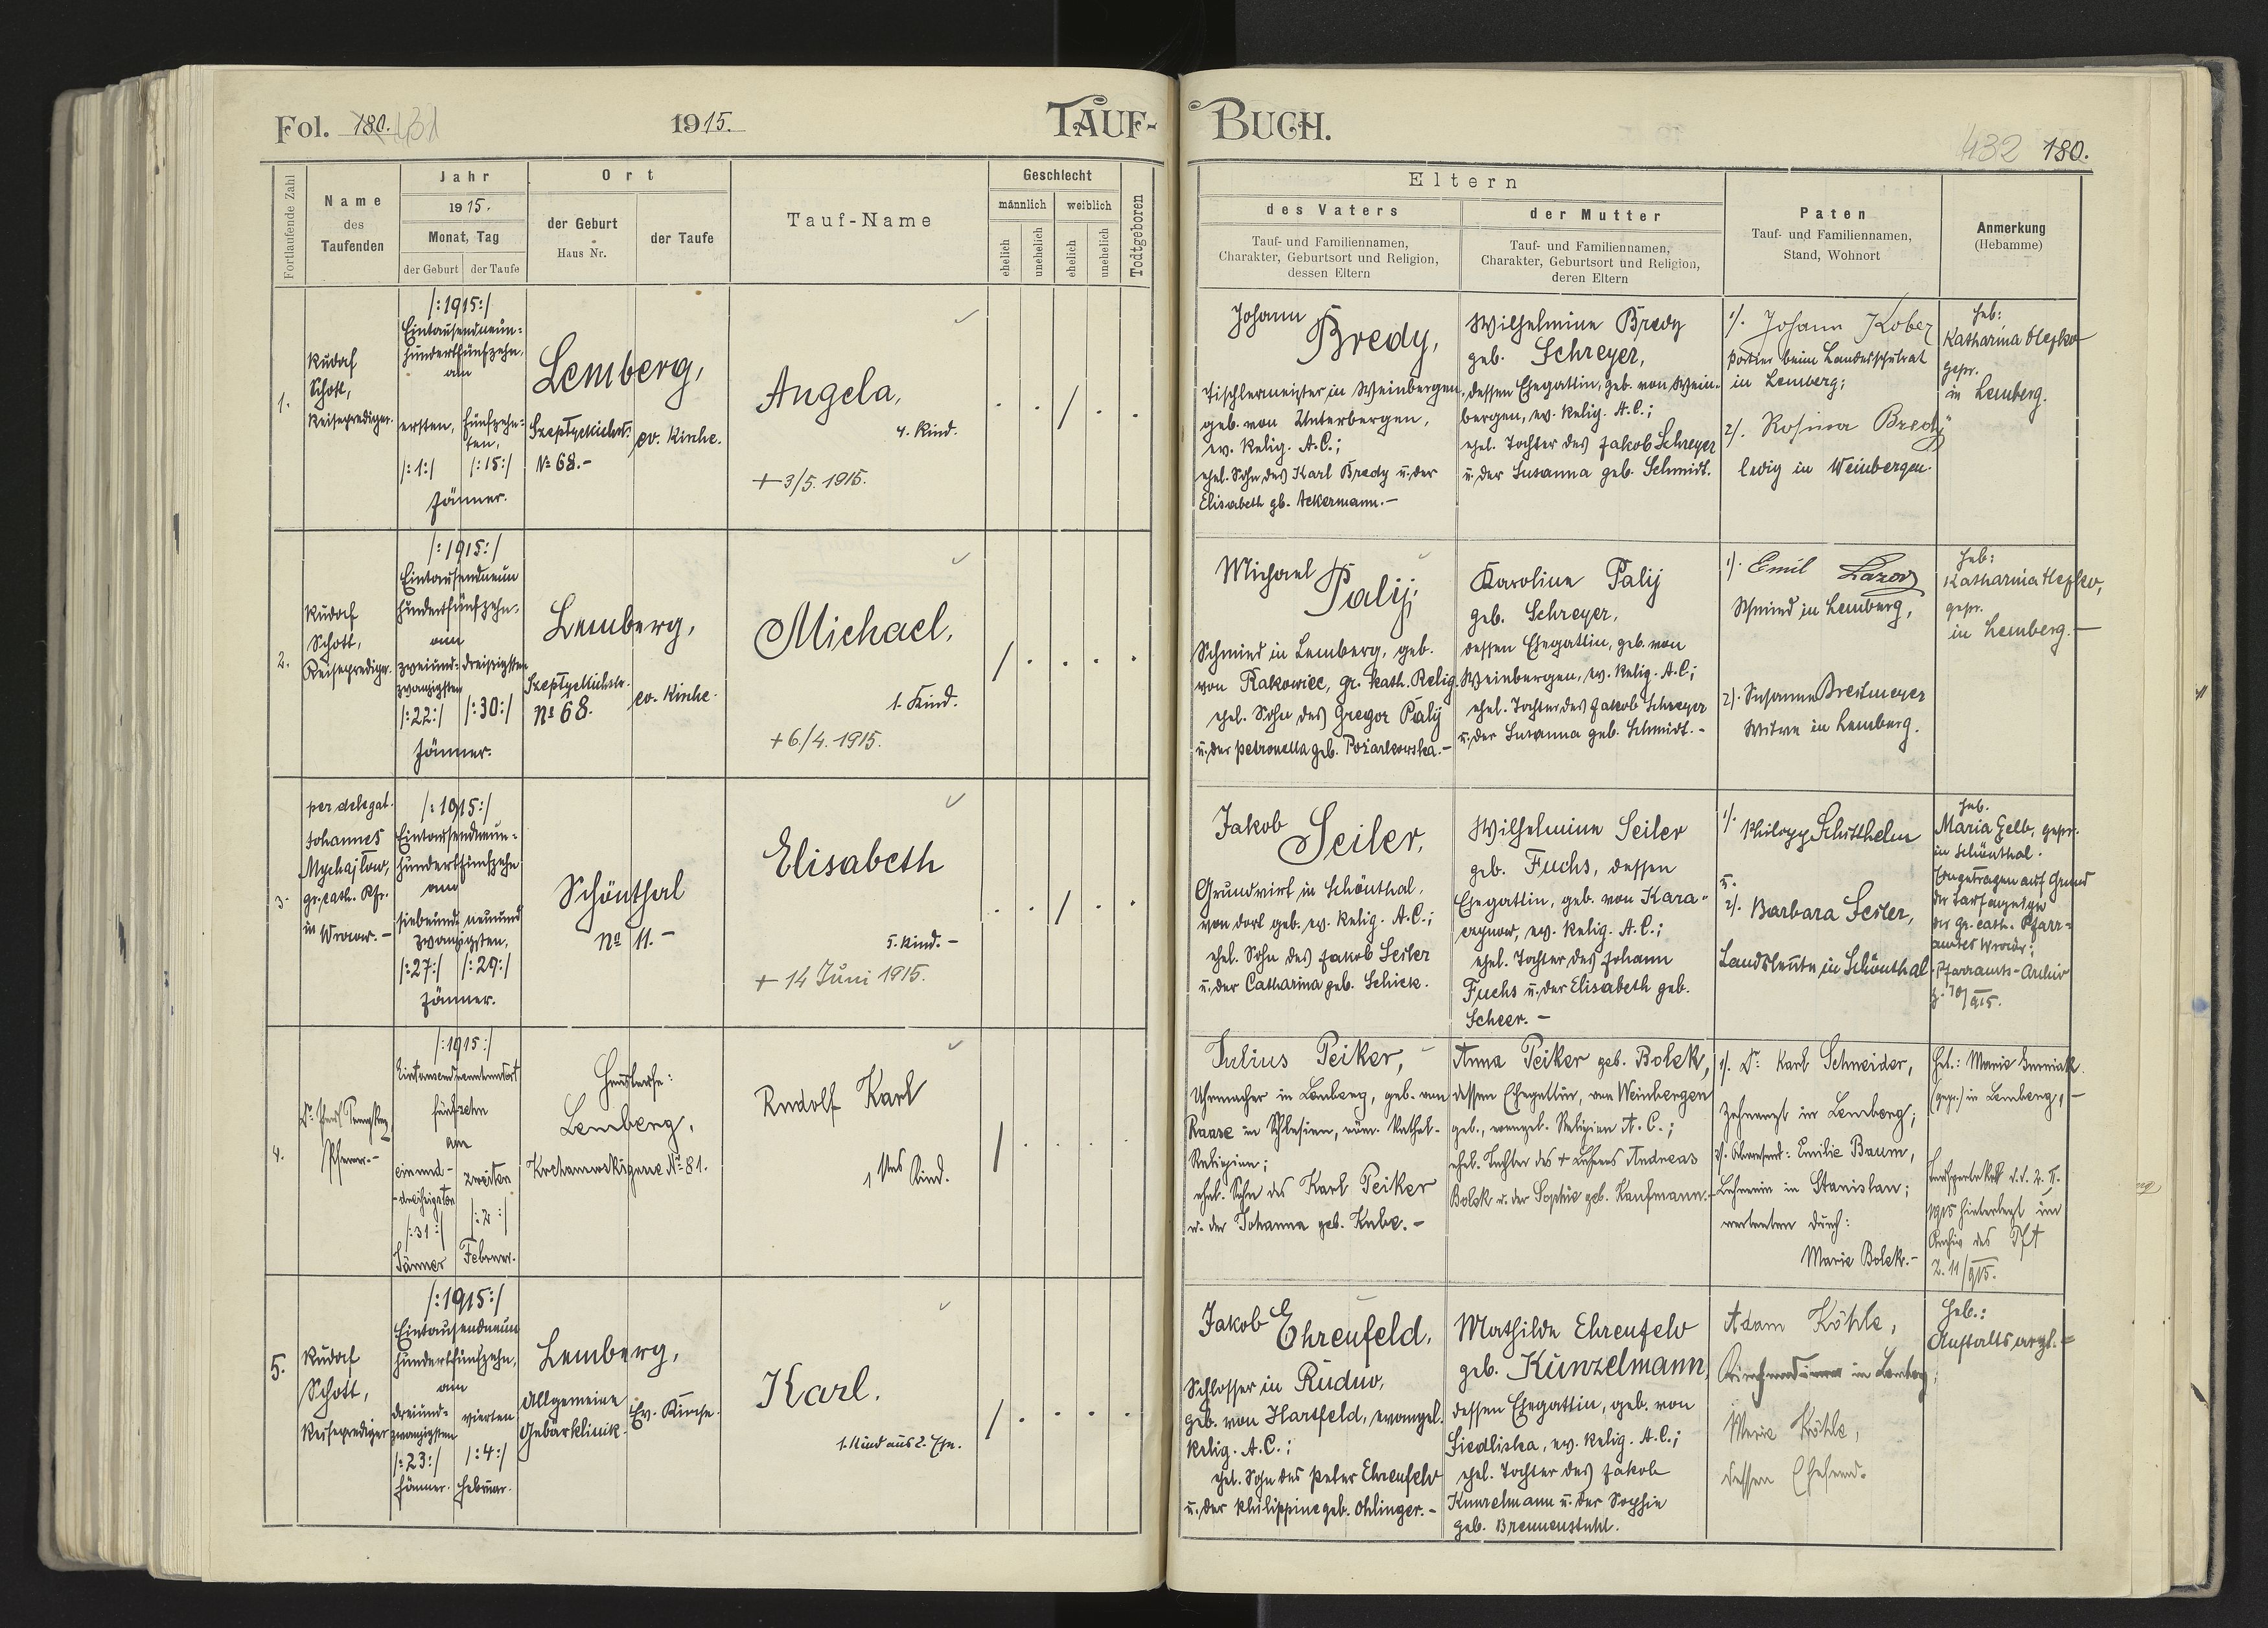 Fol. 180. 431
1915.
TAUF-
BUCH.
432 180.
Fortlaufende Zahl
Name
des
Taufenden
Jahr
1915.
Monat, Tag
der Geburt
der Taufe
Ort
der Geburt
Haus Nr.
der Taufe
Tauf-Name
Geschlecht
männlich
weiblich
ehelich
unehelich
ehelich
unehelich
Todtgeboren
Eltern
des Vaters
Tauf- und Familiennamen,
Charakter, Geburtsort und Religion,
dessen Eltern
der Mutter
Tauf- und Familiennamen,
Charakter, Geburtsort und Religion,
deren Eltern
Paten
Tauf- und Familiennamen,
Stand, Wohnort
Anmerkung
(Hebamme)
1.
Rudolf
Schott,
Reiseprediger.
/:1915:/
Eintausendneun-
hundertfünfzehn,
am
ersten,
/:1:/
fünfzehn-
ten,
/:15:/
Jänner.
Lemberg,
No 68.-
ev. Kirche.
Angela,
4. Kind.
+ 3/5. 1915.
Johann
Bredy,
Tischlermeister in Weinbergen,
geb. von Unterbergen,
ev. Relig. A.C.;
ehel. Sohn des Karl Bredy u. der
Elisabeth gb. Ackermann.-
Wilhelmine Bredy
geb. Schreyer,
dessen Ehegattin, geb. von Wein-
bergen, ev. Relig. A.C.;
ehel. Tochter des Jakob Schreyer
u. der Susanna geb. Schmidt.
1). Johann Kober
Portier beim Landesschulrat
in Lemberg;
2). Rosina Bredy
ledig in Weinbergen.
Heb:
Katharina
gepr.
in Lemberg.
2.
Rudolf
Schott,
Reiseprediger.
/:1915:/
Eintausendneun
hundertfünfzehn,
am
zweiund-
zwanzigsten
/:22:/
dreißigsten
/:30:/
Jänner.
Lemberg,
No 68.
ev. Kirche.
Michael,
1. Kind.
+ 6./4. 1915.
Michael
Palij,
Schmied in Lemberg, geb.
von Rakowiec, gr. kath. Relig.
ehel. Sohn des Gregor Palij
u. der Petronella geb.
Karoline Palij
geb. Schreyer,
dessen Ehegattin, geb. von
Weinbergen, ev. Relig. A.C;
ehel. Tochter des Jakob Schreyer
u. der Susanna geb. Schmidt.-
1). Emil
Schmied in Lemberg,
2). Susanna Breitmeyer
Witwe in Lemberg.
Heb:
Katharina
gepr.
in Lemberg.-
3.
per delegat.
Johannes
Mychajlow,
gr. cath. Pfr.
in
/:1915:/
Eintausendneun-
hundertfünfzehn
am
siebenund-
neunund
zwanzigsten,
/:27:/
/:29:/
Jänner.
Schönthal
No 11.-
Elisabeth
5. Kind.-
+ 14 Juni 1915.
Jakob
Seiler,
Grundwirt in Schönthal,
von dort geb. ev. Relig. A.C.;
ehel. Sohn des Jakob Seiler
u. der Catharina geb. Schick.
Wilhelmine Seiler
geb. Fuchs, dessen
Ehegattin, geb. von Kara-
czynow, ev. Relig. A.C.;
ehel. Tochter des Johann
Fuchs u. der Elisabeth geb.
Scheer.-
1). Philipp Schitthelm
u.
2). Barbara Seiler,
Landsleute in Schönthal
Heb.
Maria Gelb, gepr.
in Schönthal.
Eingetragen auf Grund
des Taufzeugnisses
des gr. cath. Pfarr-
amtes
Pfarramts-Archiv
4.
Pfarrer.-
/:1915:/
fünfzehn
am
einund-
dreißigsten
/:31:/
Jänner
zweiten
/:2:/
Februar.
Lemberg,
No 81.
Rudolf Karl
1tes Kind.
Julius Peiker,
Uhrmacher in Lemberg, geb. von
Raase in Schlesien, röm. Kathol.
Religion;
ehel. Sohn des Karl Peiker
u. der Johanna geb. Kube.-
Anna Peiker geb. Bolek,
dessen Ehegattin, von Weinbergen
geb., evangel. Religion A.C.;
ehel. Tochter des + Lehrers Andreas
Bolek u. der Sophie geb. Kaufmann.-
1). Dr. Karl Schneider,
Zahnarzt in Lemberg;
2). Abwesend: Emilie Baum,
Lehrerin in Stanislau;
vertreten durch:
Marie Bolek.-
Heb.: Marie
(gepr.) in Lemberg,-
1915 hinterlegt im
Archiv des PfA
Z. 11/915.
5.
Rudolf
Schott,
Reiseprediger
/:1915:/
Eintausendneun
hundertfünfzehn,
am
dreiund-
zwanzigsten
/:23:/
Jänner.
vierten
/:4:/
Februar.
Lemberg,
Allgemeine
Gebärklinik.
Ev. Kirche.
Karl.
1. Kind aus 2. Ehe.
Jakob
Ehrenfeld,
Schlosser in Rudno,
geb. von Hartfeld, evangel.
Relig. A.C.;
ehel. Sohn des Peter Ehrenfeld
u. der Philippine geb. Ohlinger.-
Mathilde Ehrenfeld
geb. Künzelmann,
dessen Ehegattin, geb. von
Siedliska, ev. Relig. A.C.;
ehel. Tochter des Jakob
Künzelmann u. der Sophie
geb. Brennenstuhl.
Adam Köhle,
in Lemberg;
Marie Köhle,
dessen
Heb.:
Anstaltsarzt.